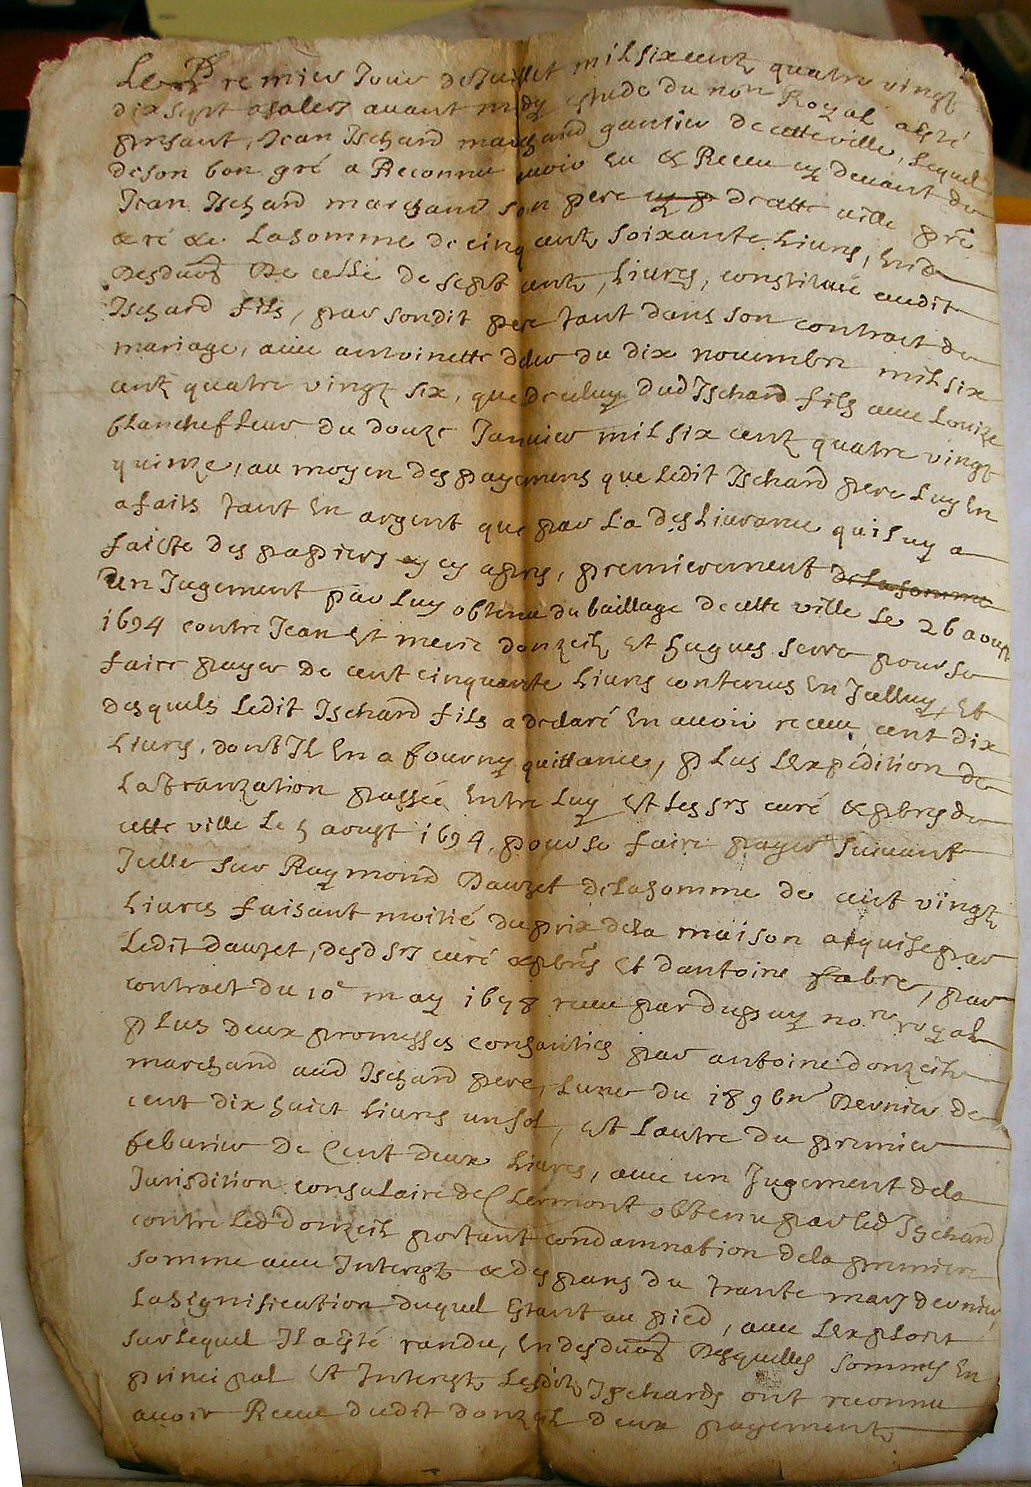 Le Premier Jour de Juillet mil six centz quatre vingt
dix sept a Salers avant midy estude du no.re Royal apre
presant, Jean Ischard marchand gantier de cette ville, lequel
de son bon gré a Reconnu avoir Eu & Receu cy devant de
Jean Ischard marchand son pere de cette ville pre
la somme de cinq centz soixante Livres, En
desduon de celle de sept centz, Livres, constituée audit
Ischard fils, par sondit pere tant dans son contract de
mariage, avec antoinette du dix novembre mil six
centz quatre vingtz six, que de celuy dud Ischard fils avec Louize
blanchefleur du douze Janvier mil six centz quatre vingt
quinze, au moyen des payemens que ledit Ischard pere luy En
a faits tant En argent que par la deslivrance qui luy a
faicte des papiers cy apres, premierement de la somme
Un Jugement par Luy obtenu du baillage de cette ville le 26 aoust
1694 contre Jean Et meric donzeilz Et hugues serre pour se
faire payer de cent cinquante Livres contenus En Jcelluy, Et
desquels ledit Ischard fils a declaré En avoir receu cent dix
Livres, dont Il En a fourny quittance, plus lexpédition de
La tranzation passée Entre luy Et les srs curé & pbres de
cette ville le 5 aoust 1694, pour se faire payer suivant
Jcelle sur Raymond dauzet de la somme de cent vingtz
Livres faisant moitié du prix de la maison acquise par
Ledit dauzet, desd srs curé & pbres Et dantoine fabre, par
contract du 10e may 1678 receu par dupuy nore royal
plus deux promesses consanties par antoine donzeilz
marchand aud Ischard pere, lune du 18 9bre dernier de
cent dix huict Livres un sol, Et lautre du premier
febvrier de Cent deux Livres, avec un Jugement de la
Jurisdition consulaire de Clermont obtenu par led Ischard
contre led donzeilz portant condamnation de la premiere
somme avec Interestz & despans du trante mars dernier
La signification duquel Estant au pied, avec lexploit
sur lequel Il a esté randu, En desduon desquelles sommes En
principal Et Interestz lesditz Ischards ont reconnu
avoir Receu dudit donzeilz deux payements